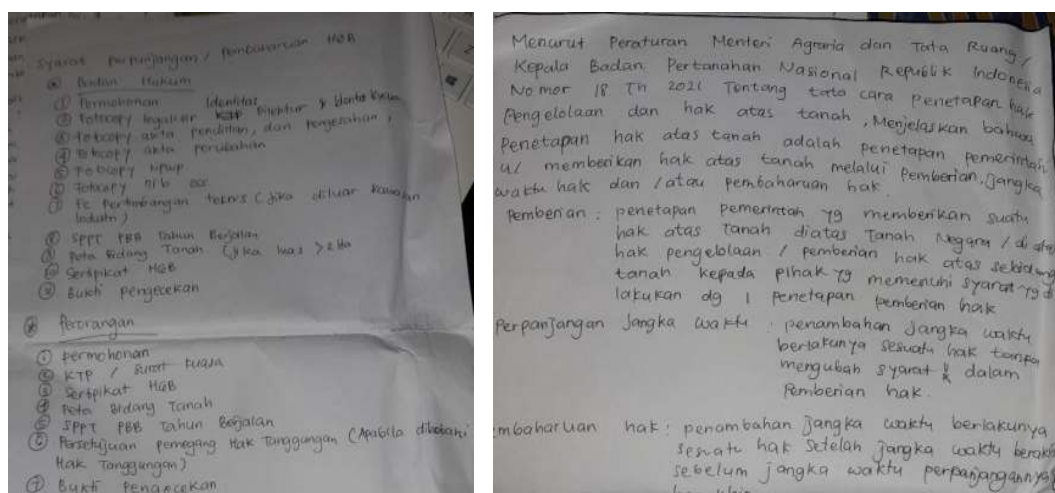 Syarat Perpanjangan / Pembaharuan HGB
Badan Hukum
① Permohonan
② Fotocopy legalisir Identitas KTP Direktur & Identitas Kuasa
③ Fotocopy akta pendirian, dan pengesahan,
④ Fotocopy akta perubahan
⑤ Fotocopy NPWP
⑥ Fotocopy nib oss
⑦ Fc Pertimbangan teknis (Jika diluar kawasan
Industri)
⑧ SPPT PBB Tahun Berjalan
⑨ Peta Bidang Tanah (Jika luas > 2 Ha
⑩ Sertipikat HGB
⑪ Bukti Pengecekan
Perorangan
① permohonan
② KTP / Surat Kuasa
③ Sertipikat HGB
④ Peta Bidang Tanah
⑤ SPPT PBB Tahun Berjalan
⑥ Persetujuan pemegang Hak Tanggungan (Apabila dibebani
Hak Tanggungan)
⑦ Bukti Pengecekan
Menurut Peraturan Menteri Agraria dan Tata Ruang /
Kepala Badan Pertanahan Nasional Republik Indonesia
Nomor 18 Th 2021 Tentang tata cara Penetapan hak
Pengelolaan dan hak atas tanah, Menjelaskan bahwa
Penetapan hak atas tanah adalah penetapan pemerintah
u/ memberikan hak atas tanah melalui Pemberian, Jangka
waktu hak dan /atau pembaharuan hak.
Pemberian : penetapan pemerintah yg memberikan suatu
hak atas tanah diatas Tanah Negara / di atas
hak pengelolaan / pemberian hak atas sebidang
tanah kepada pihak yg memenuhi syarat yg di
lakukan dg 1 penetapan pemberian hak
Perpanjangan Jangka waktu : penambahan Jangka waktu
berlakunya sesuatu hak tanpa
mengubah syarat & dalam
Pemberian hak.
mbaharuan hak : penambahan Jangka waktu berlakunya
sesuatu hak setelah Jangka waktu berakh
sebelum jangka waktu perpanjangannya